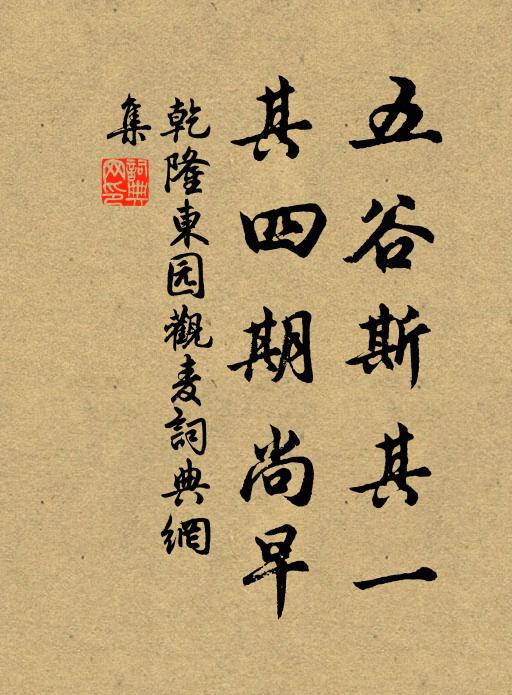 五谷斯其一
其四期尚早
乾隆東园觀麦詞典網
集
詞典
网印